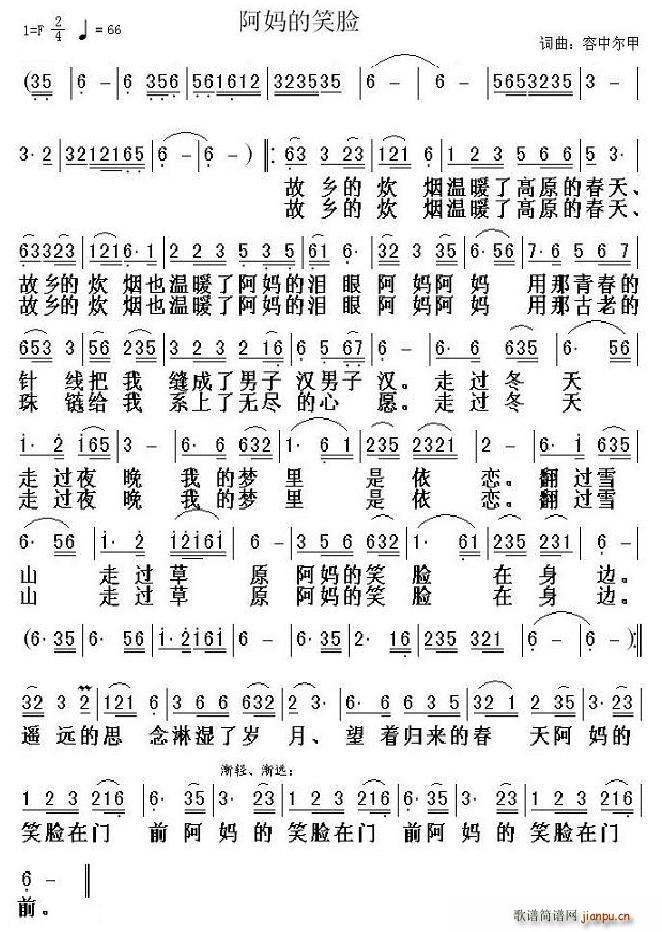 阿妈的笑脸
1=F 2/4 ♩=66
词曲：容中尔甲
(35 6 - 6 356 | 561612 | 323535 | 6 - | 6 - | 5653235 | 3 - |
3· 2 | 3212165 | 6 - | 6 - ) ‖: 63 3 23 | 121 6 | 1 2 3 5 6 6 | 5 3· |
故乡的炊 烟温暖了高原的春天、
故乡的炊 烟温暖了高原的春天、
63323 | 1216· 1 | 2 2 2 3 5 3 5 | 61 6· | 32 3 35 | 6· 56 | 7· 6 5 6 7 |
故乡的炊 烟也温暖了阿妈的泪 眼阿妈阿妈 用那青春的
故乡的炊 烟也温暖了阿妈的泪 眼阿妈阿妈 用那古老的
653 3 | 56 235 | 3 2 3 2 16 | 6· 5 67 | 6 - | 6· 6 635 | 6· 56 |
针 线把我 缝成了男子 汉男子 汉。走过冬 天
珠 链给我 系上了无尽 的心 愿。走过冬 天
i· 2 i65 | 3 - | 6· 6 6 632 | 1· 6 1 | 235 2321 | 6 - | 6· 2 635 |
走过夜 晚 我的梦 里 是 依 恋。翻过雪
走过夜 晚 我的梦 里 是 依 恋。翻过雪
6· 56 | i· 2 i2i6i | 3 5 6 632 | 1· 61 | 235 231 | 6 - |
山 走过草 原 阿妈的笑 脸 在 身 边。
山 走过草 原 阿妈的笑 脸 在 身 边。
(6· 35 | 6· 235 | i· 2 i6i6 | 6 - | 6· 35 | 2· 16 | 235 321 | 6 - | 6 -) :‖
32 3 2 | 121 6 | 3 6 6 6 632 | 2 3· | 6· 6 6 3 5 | 32 1 2 35 | 3· 2 35 |
遥 远的思 念淋湿了岁 月、望 着归来的春 天阿 妈的
渐轻、渐远：
1 2 3 216 | 6· 35 | 3· 23 | 1 2 3 216 | 6· 35 | 3· 23 | 1 2 3 216 |
笑脸在门 前阿 妈的 笑脸在门 前阿 妈的 笑脸在门
6 - ‖
前。
歌谱简谱网
jianpu.cn